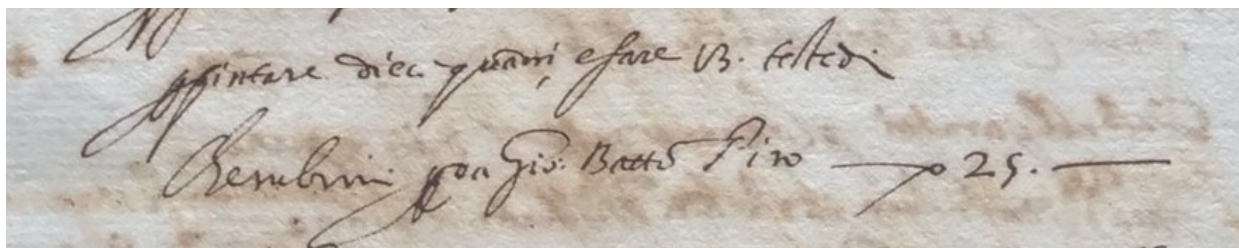 pintare dieci quadri e fare 13. teste di
Cherubini p a Gio: Batta Piro — 25. —